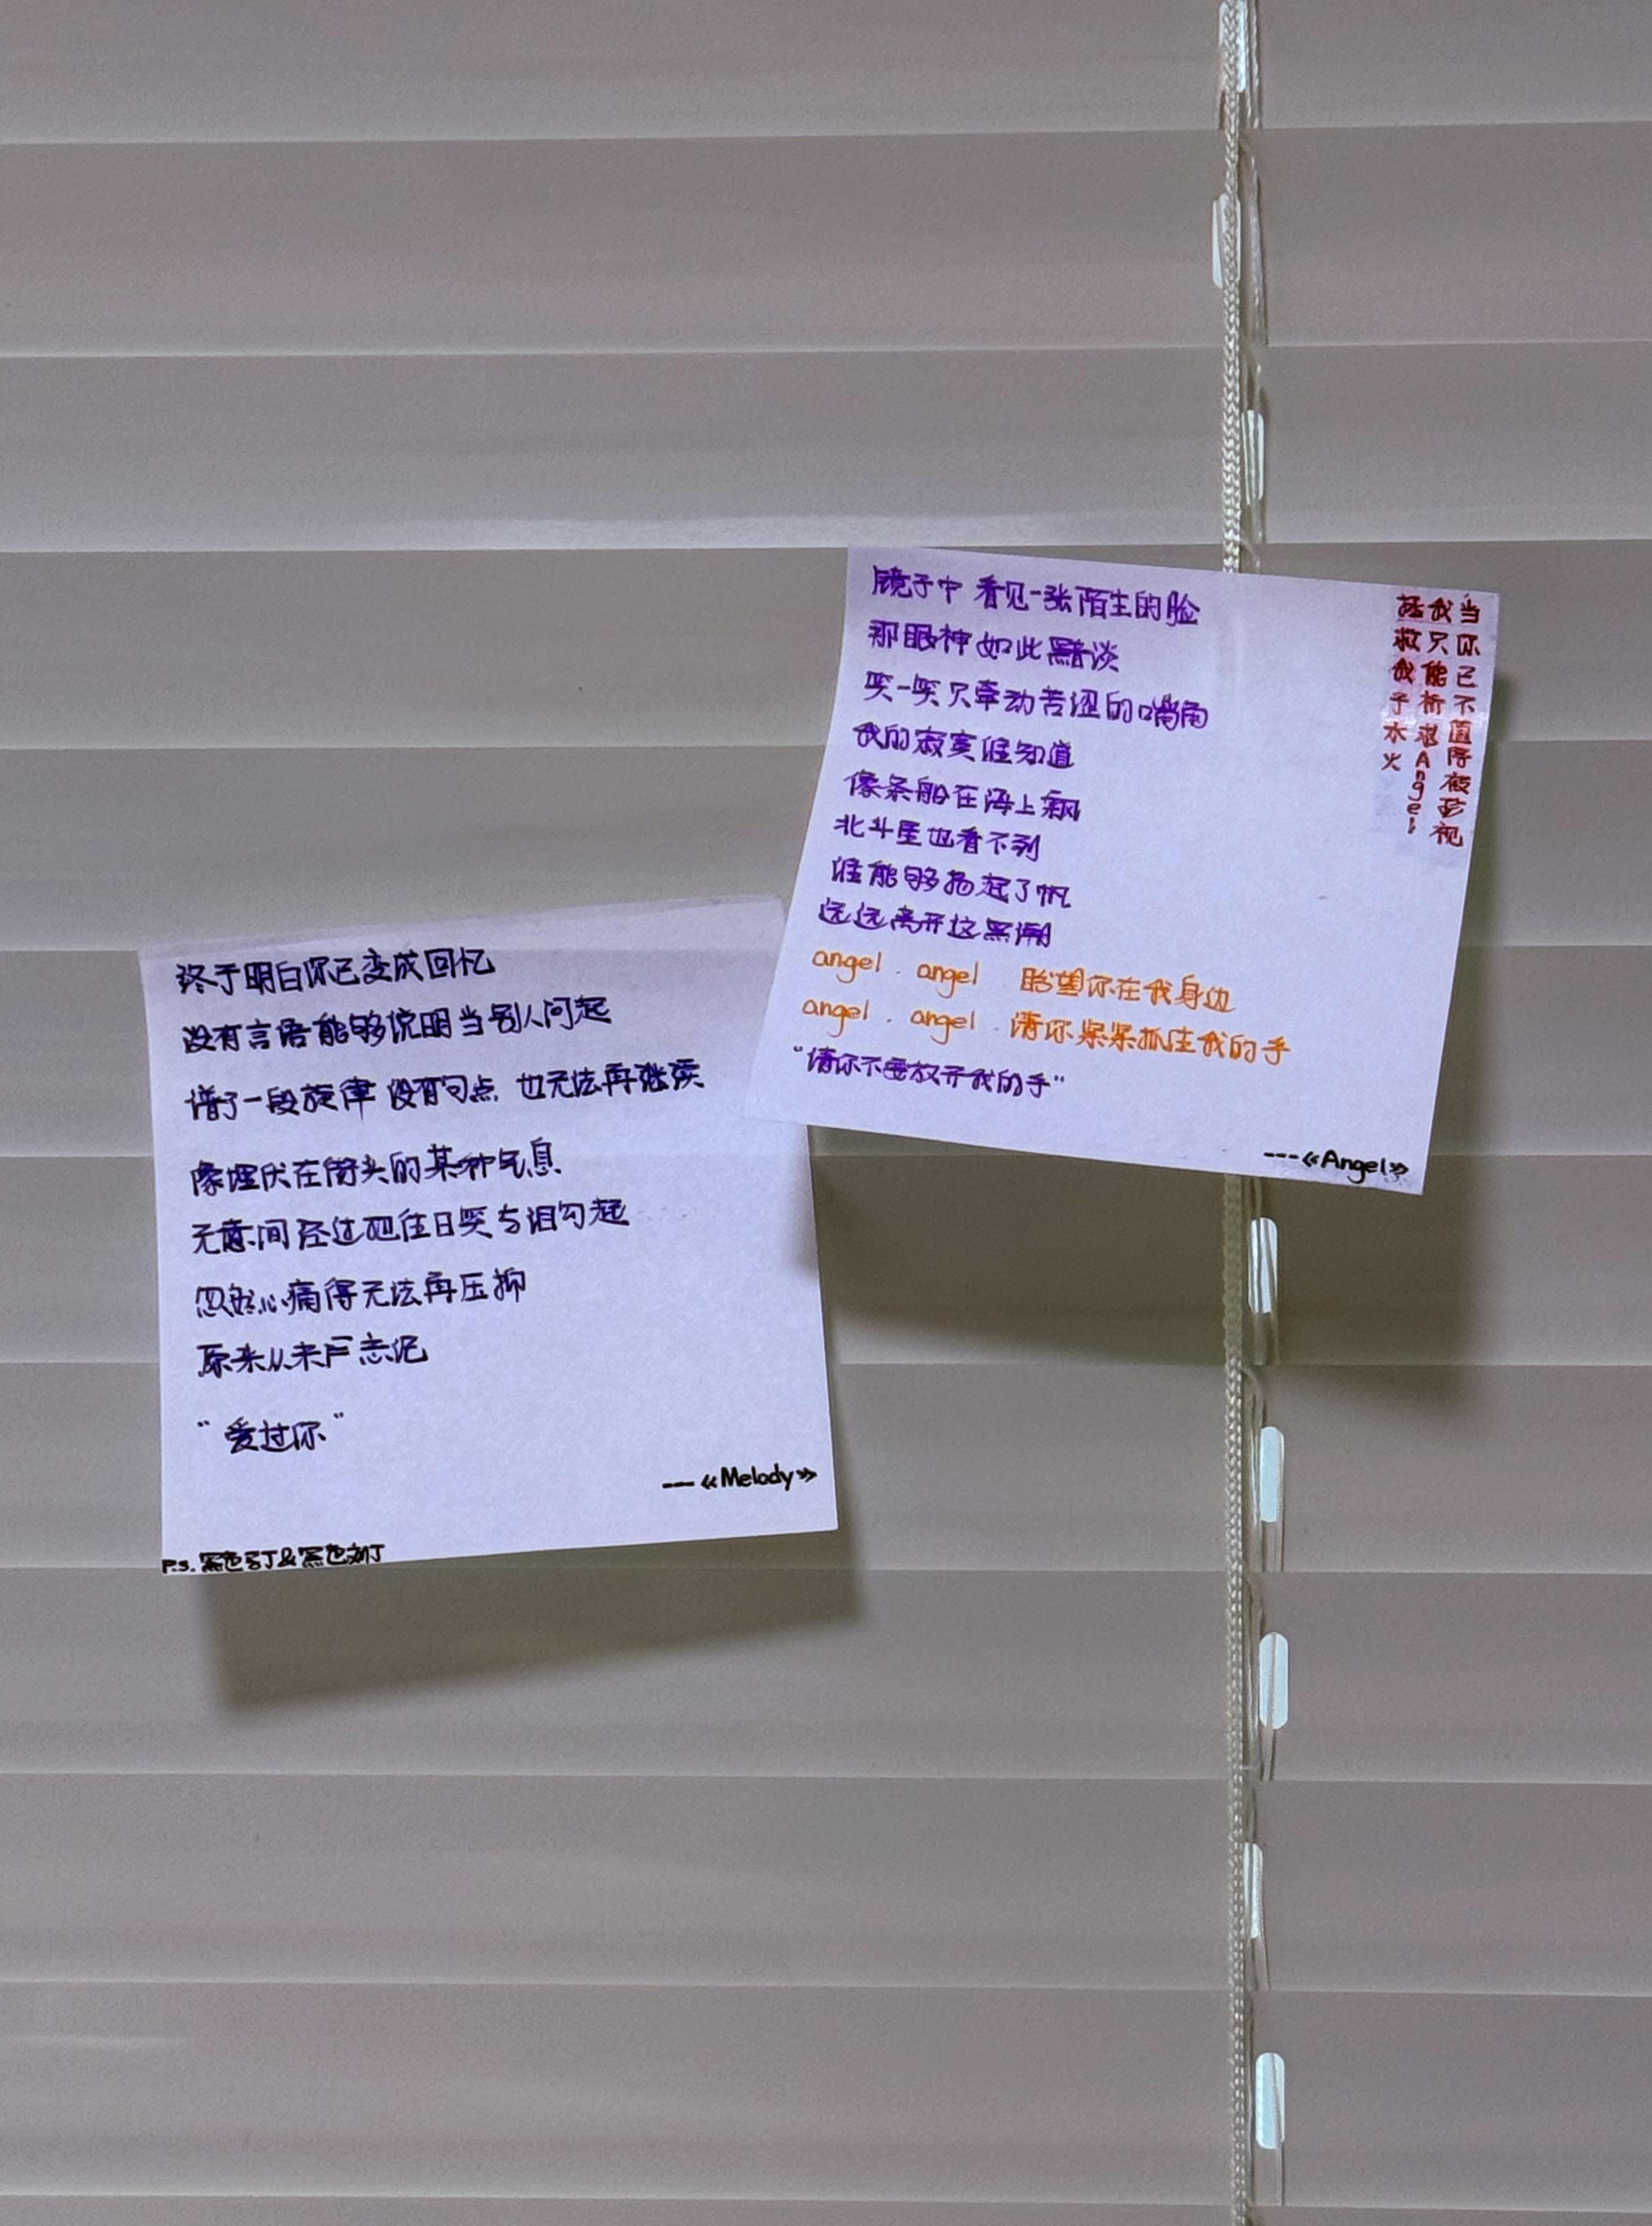 终于明白你已变成回忆
没有言语能够说明当别人问起
谱了一段旋律 没有句点 也无法再继续
像埋伏在街头的某种气息
无意间经过把往日笑与泪勾起
忽然心痛得无法再压抑
原来从未忘记
“爱过你”
---《Melody》
P.S.黑色
镜子中 看见一张陌生的脸
那眼神如此黯淡
笑一笑只牵动苦涩的嘴角
我的寂寞谁知道
像条船在海上飘
北斗星也看不到
谁能够扬起了帆
远远离开这黑潮
angel . angel . 盼望你在我身边
angel . angel . 请你紧紧抓住我的手
“请你不要放开我的手”
---《Angel》
当你已不值得被珍视
我只能祈求Angel
拯救我于水火